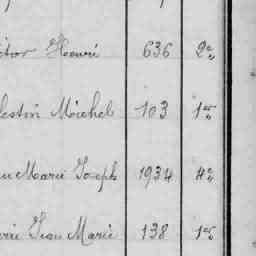 ctor Henri 636 2e
lestin Michel 103 1er
an Marie Joseph 1934 4e
erre Jean Marie 138 1er